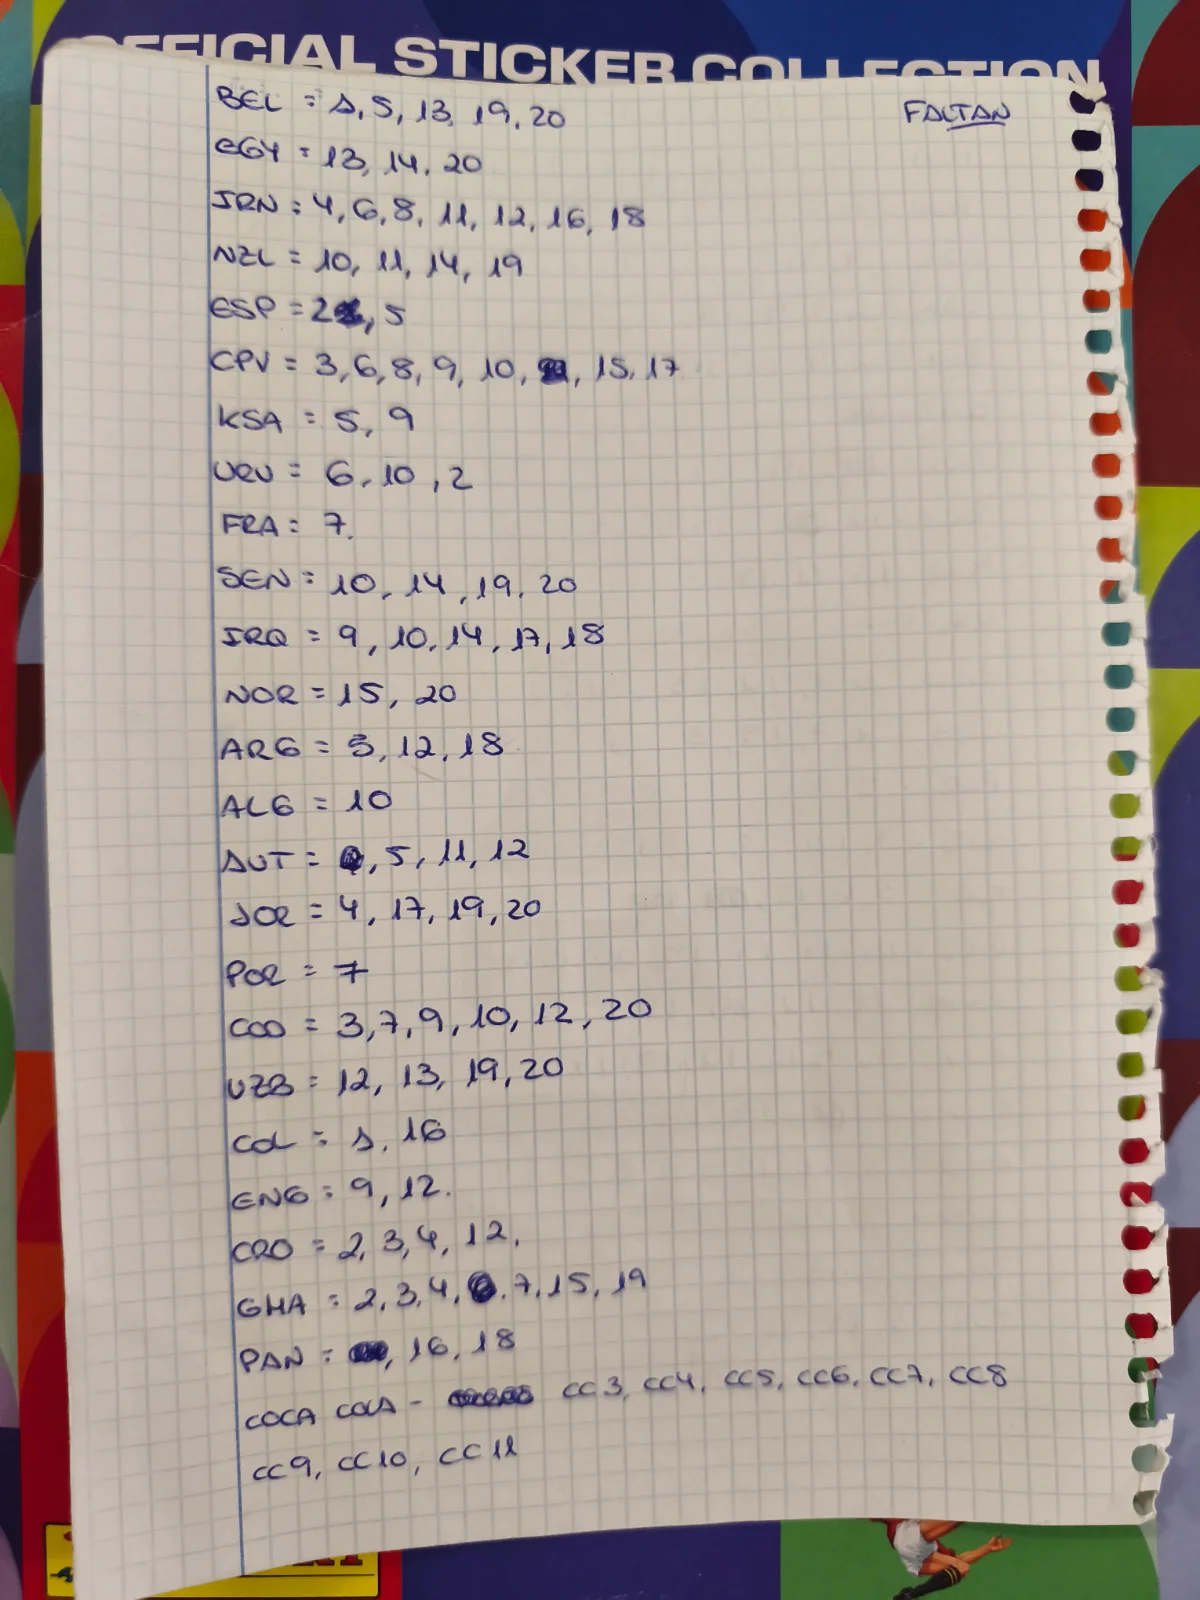 OFFICIAL STICKER COLLECTION
FALTAN
BEL = 1, 5, 13, 19, 20
EGY = 13, 14, 20
IRN = 4, 6, 8, 11, 12, 16, 18
NZL = 10, 11, 14, 19
ESP = 2, 5
CPV = 3, 6, 8, 9, 10, 15, 17
KSA = 5, 9
URU = 6, 10, 2
FRA = 7.
SEN = 10, 14, 19, 20
IRQ = 9, 10, 14, 17, 18
NOR = 15, 20
ARG = 5, 12, 18
ALG = 10
AUT = 5, 11, 12
JOR = 4, 17, 19, 20
POR = 7
COD = 3, 7, 9, 10, 12, 20
UZB = 12, 13, 19, 20
COL = 1, 16
ENG = 9, 12.
CRO = 2, 3, 4, 12,
GHA = 2, 3, 4, 7, 15, 19
PAN = 16, 18
COCA COLA - CC3, CC4, CC5, CC6, CC7, CC8
CC9, CC10, CC11